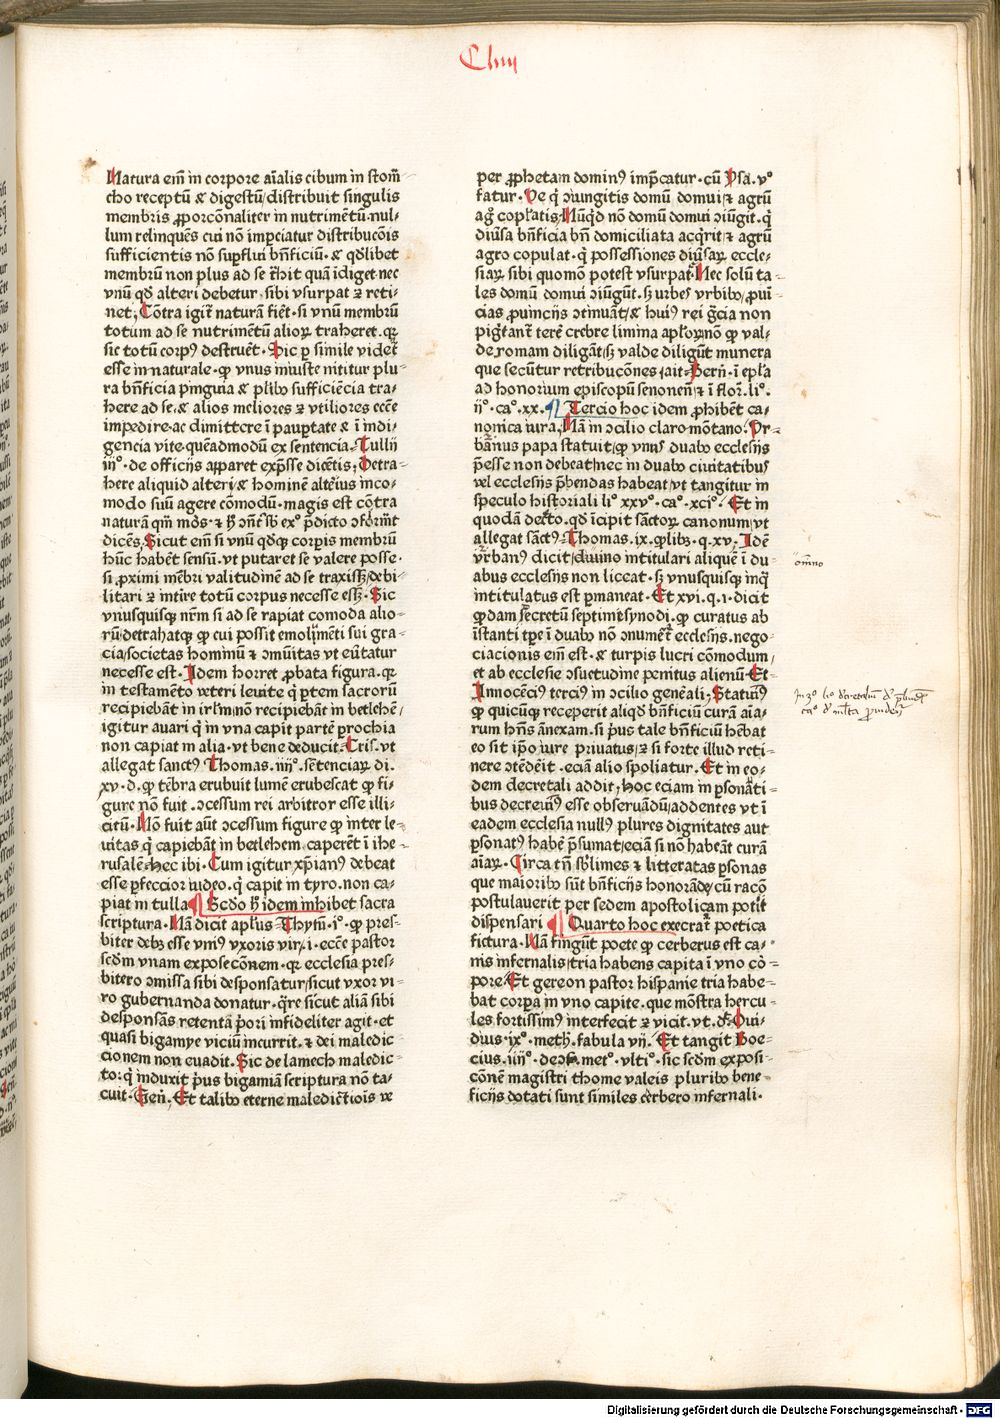 Cliiij
Natura em̄ in corpore aīalis cibum in stom̄⸗
cho receptū & digestū/distribuit singulis
membris ꝓporcōnaliter in nutrimētū·nul⸗
lum relinquēs cui nō imꝑciatur distribucōis
sufficientis nō suꝑflui bn̄ficiū· & qd̄libet
membrū non plus ad se t̄hit quā īdiget nec
vnū qd̄ alteri debetur sibi vsurpat ꝛ reti⸗
net/ Cōtra igit̄ naturā fiet̄· si vnū membrū
totum ad se nutrimētū alioꝝ traheret· qꝛ
sic totū corpꝰ destruet̄· Sic ꝑ simile videt̄
esse innaturale· ꝙ vnus iniuste nititur plu⸗
ra bn̄ficia pinguia & plibꝰ sufficiēcia tra⸗
here ad se· & alios meliores ꝛ vtiliores ecc̄e
impedire· ac dimittere ī pauꝑtate & ī indi⸗
gencia vite· queadmodū ex sentencia Tullij
iijº· de officijs apparet exp̄sse dicētis/ Detra⸗
here aliquid alteri/& hominē alteriꝰ inco⸗
modo suū agere cōmodū· magis est cōtra
naturā
dicēs/ Sicut em̄ si vnū qd̄qꝫ corꝑis membrū
hūc habēt sensū· vt putaret se valere posse·
si ꝓximi mēbri valitudinē ad se traxissꝫ/debi⸗
litari ꝛ intire totū corpus necesse essꝫ· Sic
vnusquisqꝫ nr̄m si ad se rapiat comoda alio⸗
rū/detrahatqꝫ ꝙ cui possit emolumēti sui gra⸗
cia/societas hominū & ꝯmūitas vt eūtatur
necesse est· Idem horret ꝓbata figura· qꝛ
in testamēto veteri leuite q̄ ꝑtem sacrorū
recipiebāt in irl̄m/nō recipiebāt in betlehē/
igitur auari q̄ in vna capit partē ꝑrochia
non capiat in alia· vt bene deducit· Cris· vt
allegat sanctꝰ Thomas· iiijº· sētenciaꝝ di·
xv· d· ꝙ tēbra erubuit lumē erubescat ꝙ fi⸗
gure nō fuit· ꝯcessum rei arbitror esse illi⸗
citū· Nō fuit aūt ꝯcessum figure ꝙ inter le⸗
uitas q̄ capiebāt in betlehem caperēt ī ihe⸗
rusale· hec ibi· Cum igitur xp̄ianꝰ debeat
esse ꝑfeccior iudeo· q̄ capit in tyro· non ca⸗
piat in tulla ¶ Scd̄o h̄ idem inhibet sacra
scriptura· Nā dicit apl̄us· Thym̄· iº· ꝙ pres⸗
biter debꝫ esse vniꝰ vxoris vir· i· ecc̄e pastor
scd̄m vnam exposecōnem· qꝛ ecclesia pres⸗
bitero ꝯmissa sibi desponsatur/sicut vxor vi⸗
ro gubernanda donatur· q̄re sicut aliā sibi
desponsās retentā p̄ori infideliter agit· et
quasi bigamye viciū incurrit· & dei maledic⸗
cionem non euadit· Sic de lamech maledic⸗
to· q̄ induxit p̄us bigamiā scriptura nō ta⸗
cuit· Gen̄· Et talibꝰ eterne maledictiois ve
per ꝓphetam dominꝰ imp̄catur· cū Ysa· vº
fatur· Ve q̄ ꝯiungitis domū domui/& agrū
agro copl̄atis/ Nūqd nō domū domui ꝯiūgit· q̄
diūsa bn̄ficia bn̄ domiciliata acq̄rit/ & agrū
agro copulat· q̄ possessiones diūsaꝝ eccle⸗
siaꝝ sibi quomō potest vsurpat· Nec solū ta⸗
les domū domui ꝯiūgūt· sꝫ vrbes vrbibꝰ/ ꝓuī⸗
cias ꝓuincijs ꝯtinuāt/& huiꝰ rei gr̄cia non
pigtant̄ terē crebre limina apl̄oꝝ/nō ꝙ val⸗
de romam diligāt/sꝫ valde diligūt munera
que secūtur retribucōnes· ait· Bern̄· ī epl̄a
ad honorium episcopū senonen̄/& ī flor̄· liº·
ijº· caº· xx· ¶ Tercio hoc idem ꝓhibēt ca⸗
nonica iura/ Nā in ꝯcilio claromōtano· Vr⸗
banus papa statuit/ꝙ vnus duabꝰ ecclesijs
p̄esse non debeat/nec in duabꝰ ciuitatibus
vel ecclesijs p̄bendas habeat/vt tangitur in
speculo historiali liº xxvº· caº· xciº· Et in
quodā decr̄to· qd̄ īcipit sāctoꝝ canonum/vt
allegat sāctꝰ· Thomas· ix· ꝗlibꝫ· q· xv/ Idē
vr̄banꝰ dicit/diuino intitulari aliquē ī du⸗
abus ecclesijs non liceat· sꝫ vnusquisqꝫ inq̄
intitulatus est ꝑmaneat· Et xvi· q· i· dicit
quodam secretū septimesynodi· ꝙ curatus ab
īstanti tꝑe ī duabꝰ nō ꝯnumer̄ ecclesijs· nego⸗
ciacionis em̄ est· & turpis lucri cōmodum/
et ab ecclesie ꝯsuetudine penitus alienū· Et
Innocēciꝰ tercius in ꝯcilio gene̅ali/ Statuimꝰ
ꝙ quicūqꝫ receperit aliqd̄ bn̄ficiū curā aīa⸗
rum hn̄s ānexam· si p̄us tale bn̄ficiū hēbat
eo sit ip̄o iure priuatus/ꝛ si forte illud reti⸗
nere ꝯtēdēit· eciā alio spoliatur· Et in eo⸗
dem decretali addit/ hoc eciam in ꝑsonāti⸗
bus decreuimꝰ esse obseruādū/addentes vt ī
eadem ecclesia nullꝰ plures dignitates aut
ꝑsonatꝰ habē p̄sumat/eciā si nō habeāt curā
aīaꝝ· Circa tn̄ sb̄limes & litteratas ꝑsonas
que maioribꝰ sūt bn̄ficijs honorāde/cū racō
postulauerit per sedem apostolicam poterit
dispensari ¶ Quarto hoc execrat̄ poetica
fictura· Nā fingūt poete ꝙ cerberus est ca⸗
nis infernalis/tria habens capita ī vno cor⸗
pore· Et gereon pastor hispanie tria habe⸗
bat corꝑa in vno capite· que mōstra hercu⸗
les fortissimꝰ interfecit ꝛ vicit· vt· dr̄· Oui⸗
dius· ixº· meth· fabula vij· Et tangit Boe⸗
cius· iiijº· de ꝯso· metº· vltiº· sic scd̄m exposi⸗
cōnē magistri thome valeis pluribꝰ bene⸗
ficijs dotati sunt similes cerbero infernali·
om̄no
in 3º liº decretaliū de p̄bendꝫ
caº de multa prouiden̄
Digitalisierung gefördert durch die Deutsche Forschungsgemeinschaft - DFG